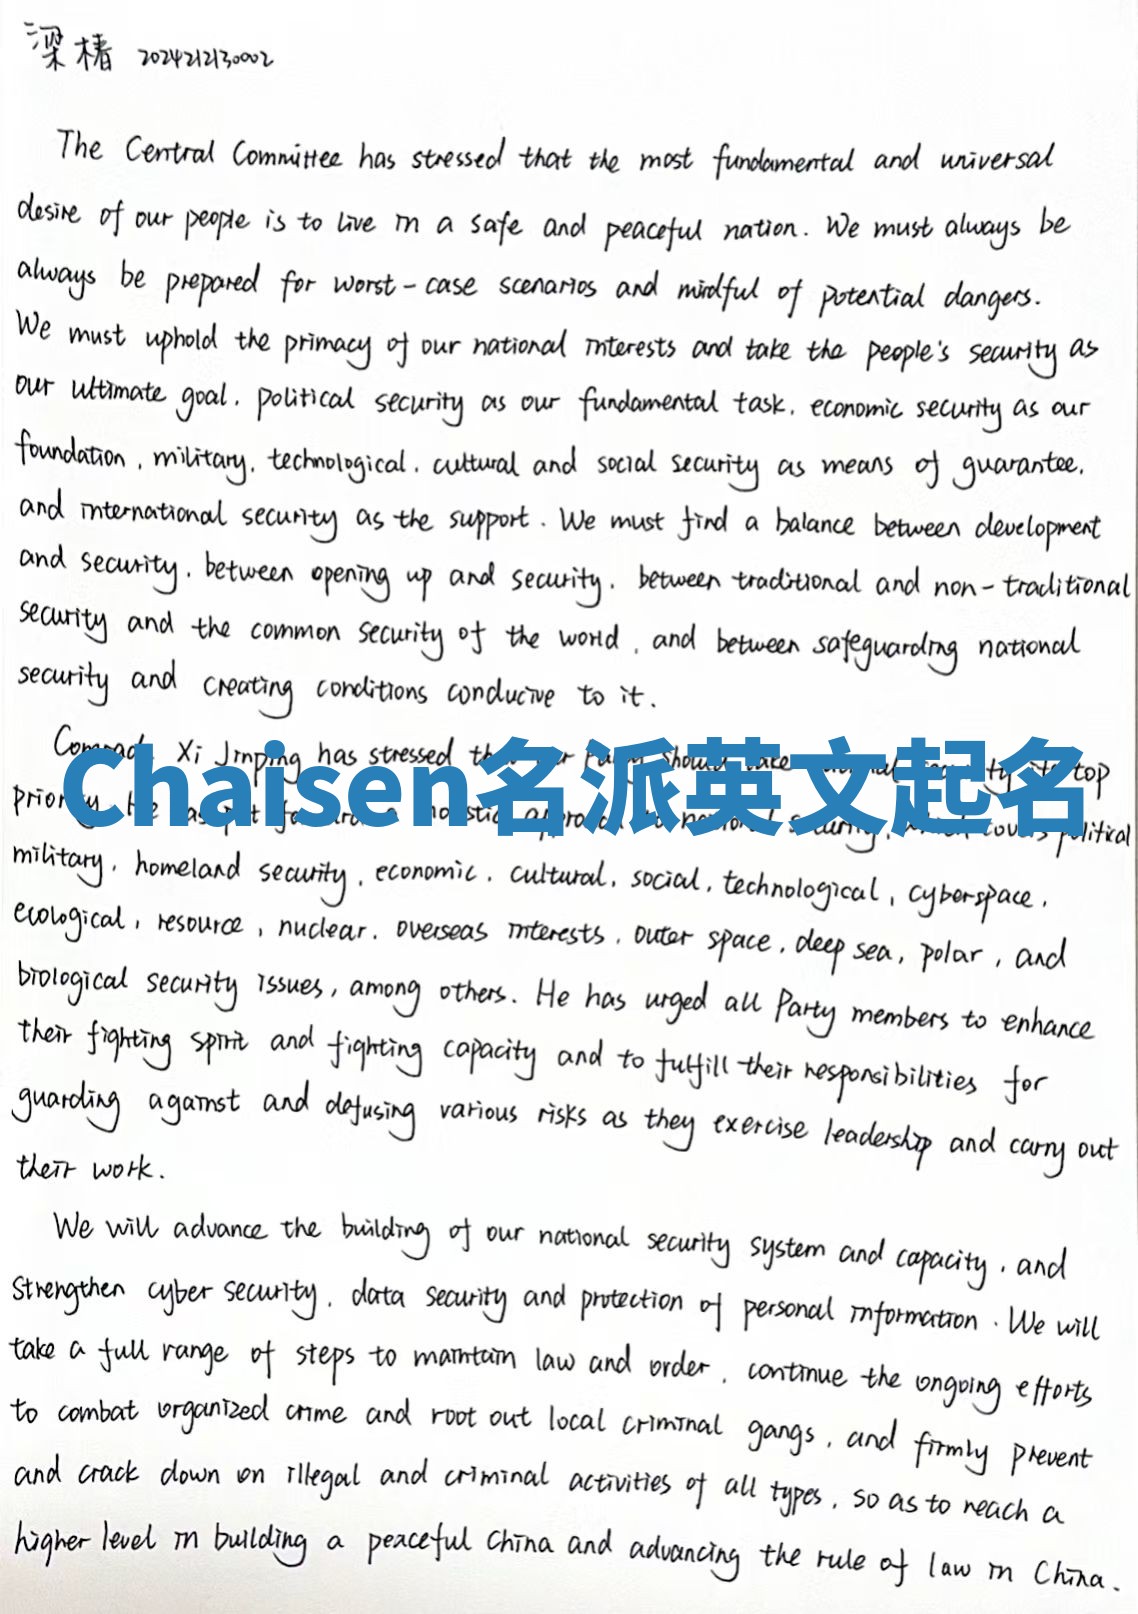 梁椿 2024212130002
The Central Committee has stressed that the most fundamental and universal
desire of our people is to live in a safe and peaceful nation. We must always be
always be prepared for worst-case scenarios and mindful of potential dangers.
We must uphold the primacy of our national interests and take the people's security as
our ultimate goal, political security as our fundamental task, economic security as our
foundation, military, technological, cultural and social security as means of guarantee,
and international security as the support. We must find a balance between development
and security, between opening up and security, between traditional and non-traditional
security and the common security of the world, and between safeguarding national
security and creating conditions conducive to it.
Xi Jinping has stressed top
Chaisen名派英文起名
priority. He political
military, homeland security, economic, cultural, social, technological, cyberspace,
ecological, resource, nuclear, overseas interests, outer space, deep sea, polar, and
biological security issues, among others. He has urged all Party members to enhance
their fighting spirit and fighting capacity and to fulfill their responsibilities for
guarding against and defusing various risks as they exercise leadership and carry out
their work.
We will advance the building of our national security system and capacity, and
strengthen cyber security, data security and protection of personal information. We will
take a full range of steps to maintain law and order, continue the ongoing efforts
to combat organized crime and root out local criminal gangs, and firmly prevent
and crack down on illegal and criminal activities of all types, so as to reach a
higher level in building a peaceful China and advancing the rule of law in China.